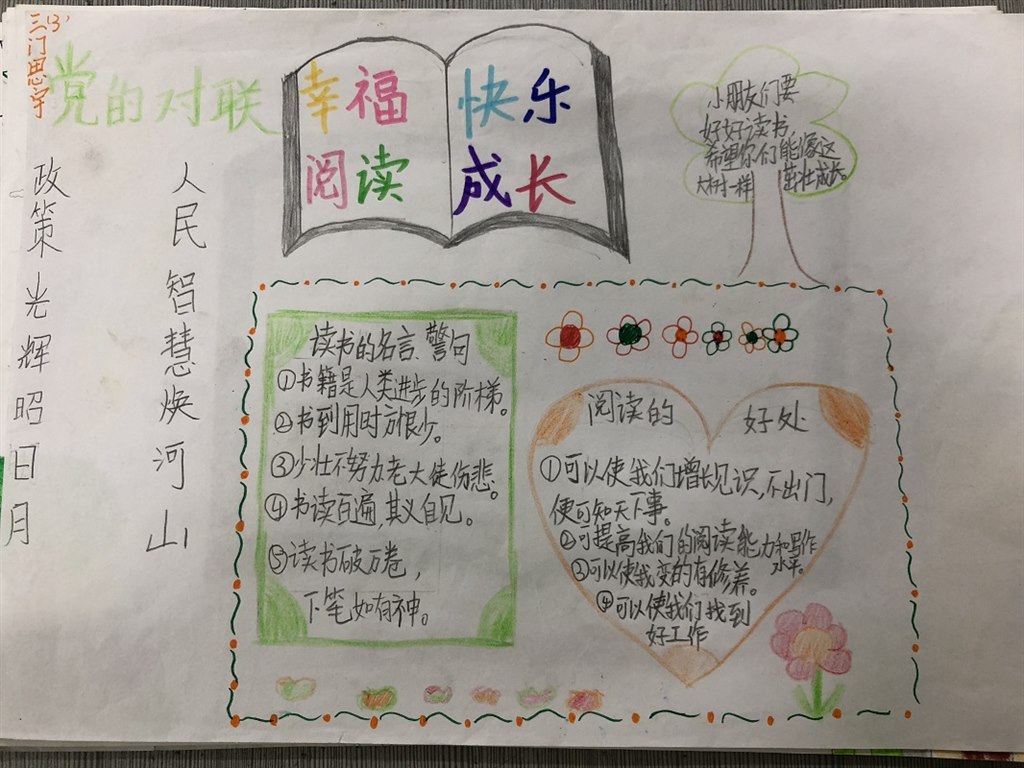 三(3)
门思宇
党的对联
人民智慧焕河山
政策光辉昭日月
幸福
阅读
快乐
成长
小朋友们要
好好读书
希望你们能像这
大树一样茁壮成长。
读书的名言、警句
①书籍是人类进步的阶梯。
②书到用时方恨少。
③少壮不努力老大徒伤悲。
④书读百遍,其义自见。
⑤读书破万卷,
下笔如有神。
阅读的好处
①可以使我们增长见识,不出门,
便可知天下事。
②可提高我们的阅读能力和写作
水平。
③可以使我变的有修养。
④可以使我们找到
好工作